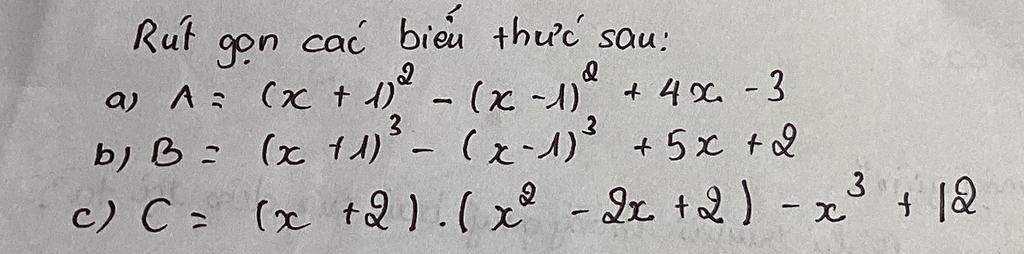 Rút gọn các biểu thức sau:
a) A = (x + 1)² - (x - 1)² + 4x - 3
b) B = (x + 1)³ - (x - 1)³ + 5x + 2
c) C = (x + 2).(x² - 2x + 2) - x³ + 12